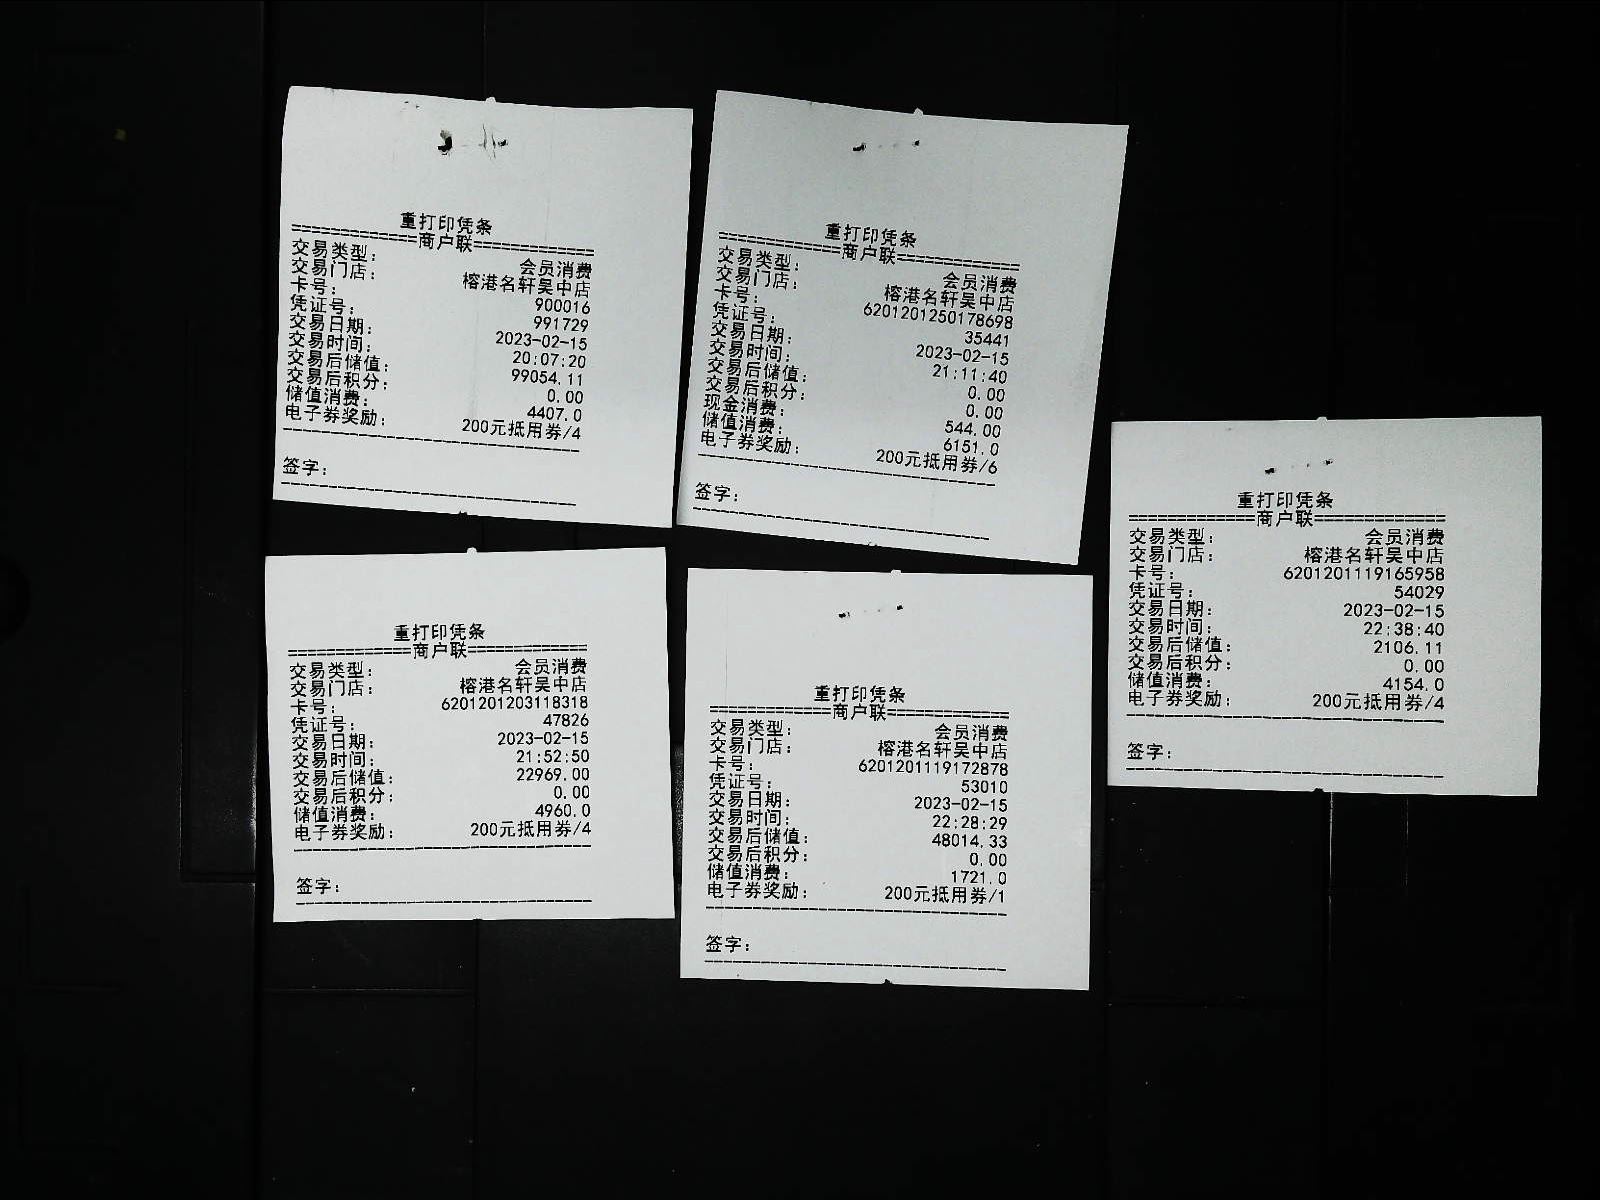 重打印凭条
=============商户联=============
交易类型: 会员消费
交易门店: 榕港名轩吴中店
卡号: 900016
凭证号: 991729
交易日期: 2023-02-15
交易时间: 20:07:20
交易后储值: 99054.11
交易后积分: 0.00
储值消费: 4407.0
电子券奖励: 200元抵用券/4
--------------------------------
签字:
--------------------------------
重打印凭条
=============商户联=============
交易类型: 会员消费
交易门店: 榕港名轩吴中店
卡号: 6201201250178698
凭证号: 35441
交易日期: 2023-02-15
交易时间: 21:11:40
交易后储值: 0.00
交易后积分: 0.00
现金消费: 544.00
储值消费: 6151.0
电子券奖励: 200元抵用券/6
--------------------------------
签字:
--------------------------------
重打印凭条
=============商户联=============
交易类型: 会员消费
交易门店: 榕港名轩吴中店
卡号: 6201201119165958
凭证号: 54029
交易日期: 2023-02-15
交易时间: 22:38:40
交易后储值: 2106.11
交易后积分: 0.00
储值消费: 4154.0
电子券奖励: 200元抵用券/4
--------------------------------
签字:
--------------------------------
重打印凭条
=============商户联=============
交易类型: 会员消费
交易门店: 榕港名轩吴中店
卡号: 6201201203118318
凭证号: 47826
交易日期: 2023-02-15
交易时间: 21:52:50
交易后储值: 22969.00
交易后积分: 0.00
储值消费: 4960.0
电子券奖励: 200元抵用券/4
--------------------------------
签字:
--------------------------------
重打印凭条
=============商户联=============
交易类型: 会员消费
交易门店: 榕港名轩吴中店
卡号: 6201201119172878
凭证号: 53010
交易日期: 2023-02-15
交易时间: 22:28:29
交易后储值: 48014.33
交易后积分: 0.00
储值消费: 1721.0
电子券奖励: 200元抵用券/1
--------------------------------
签字:
--------------------------------